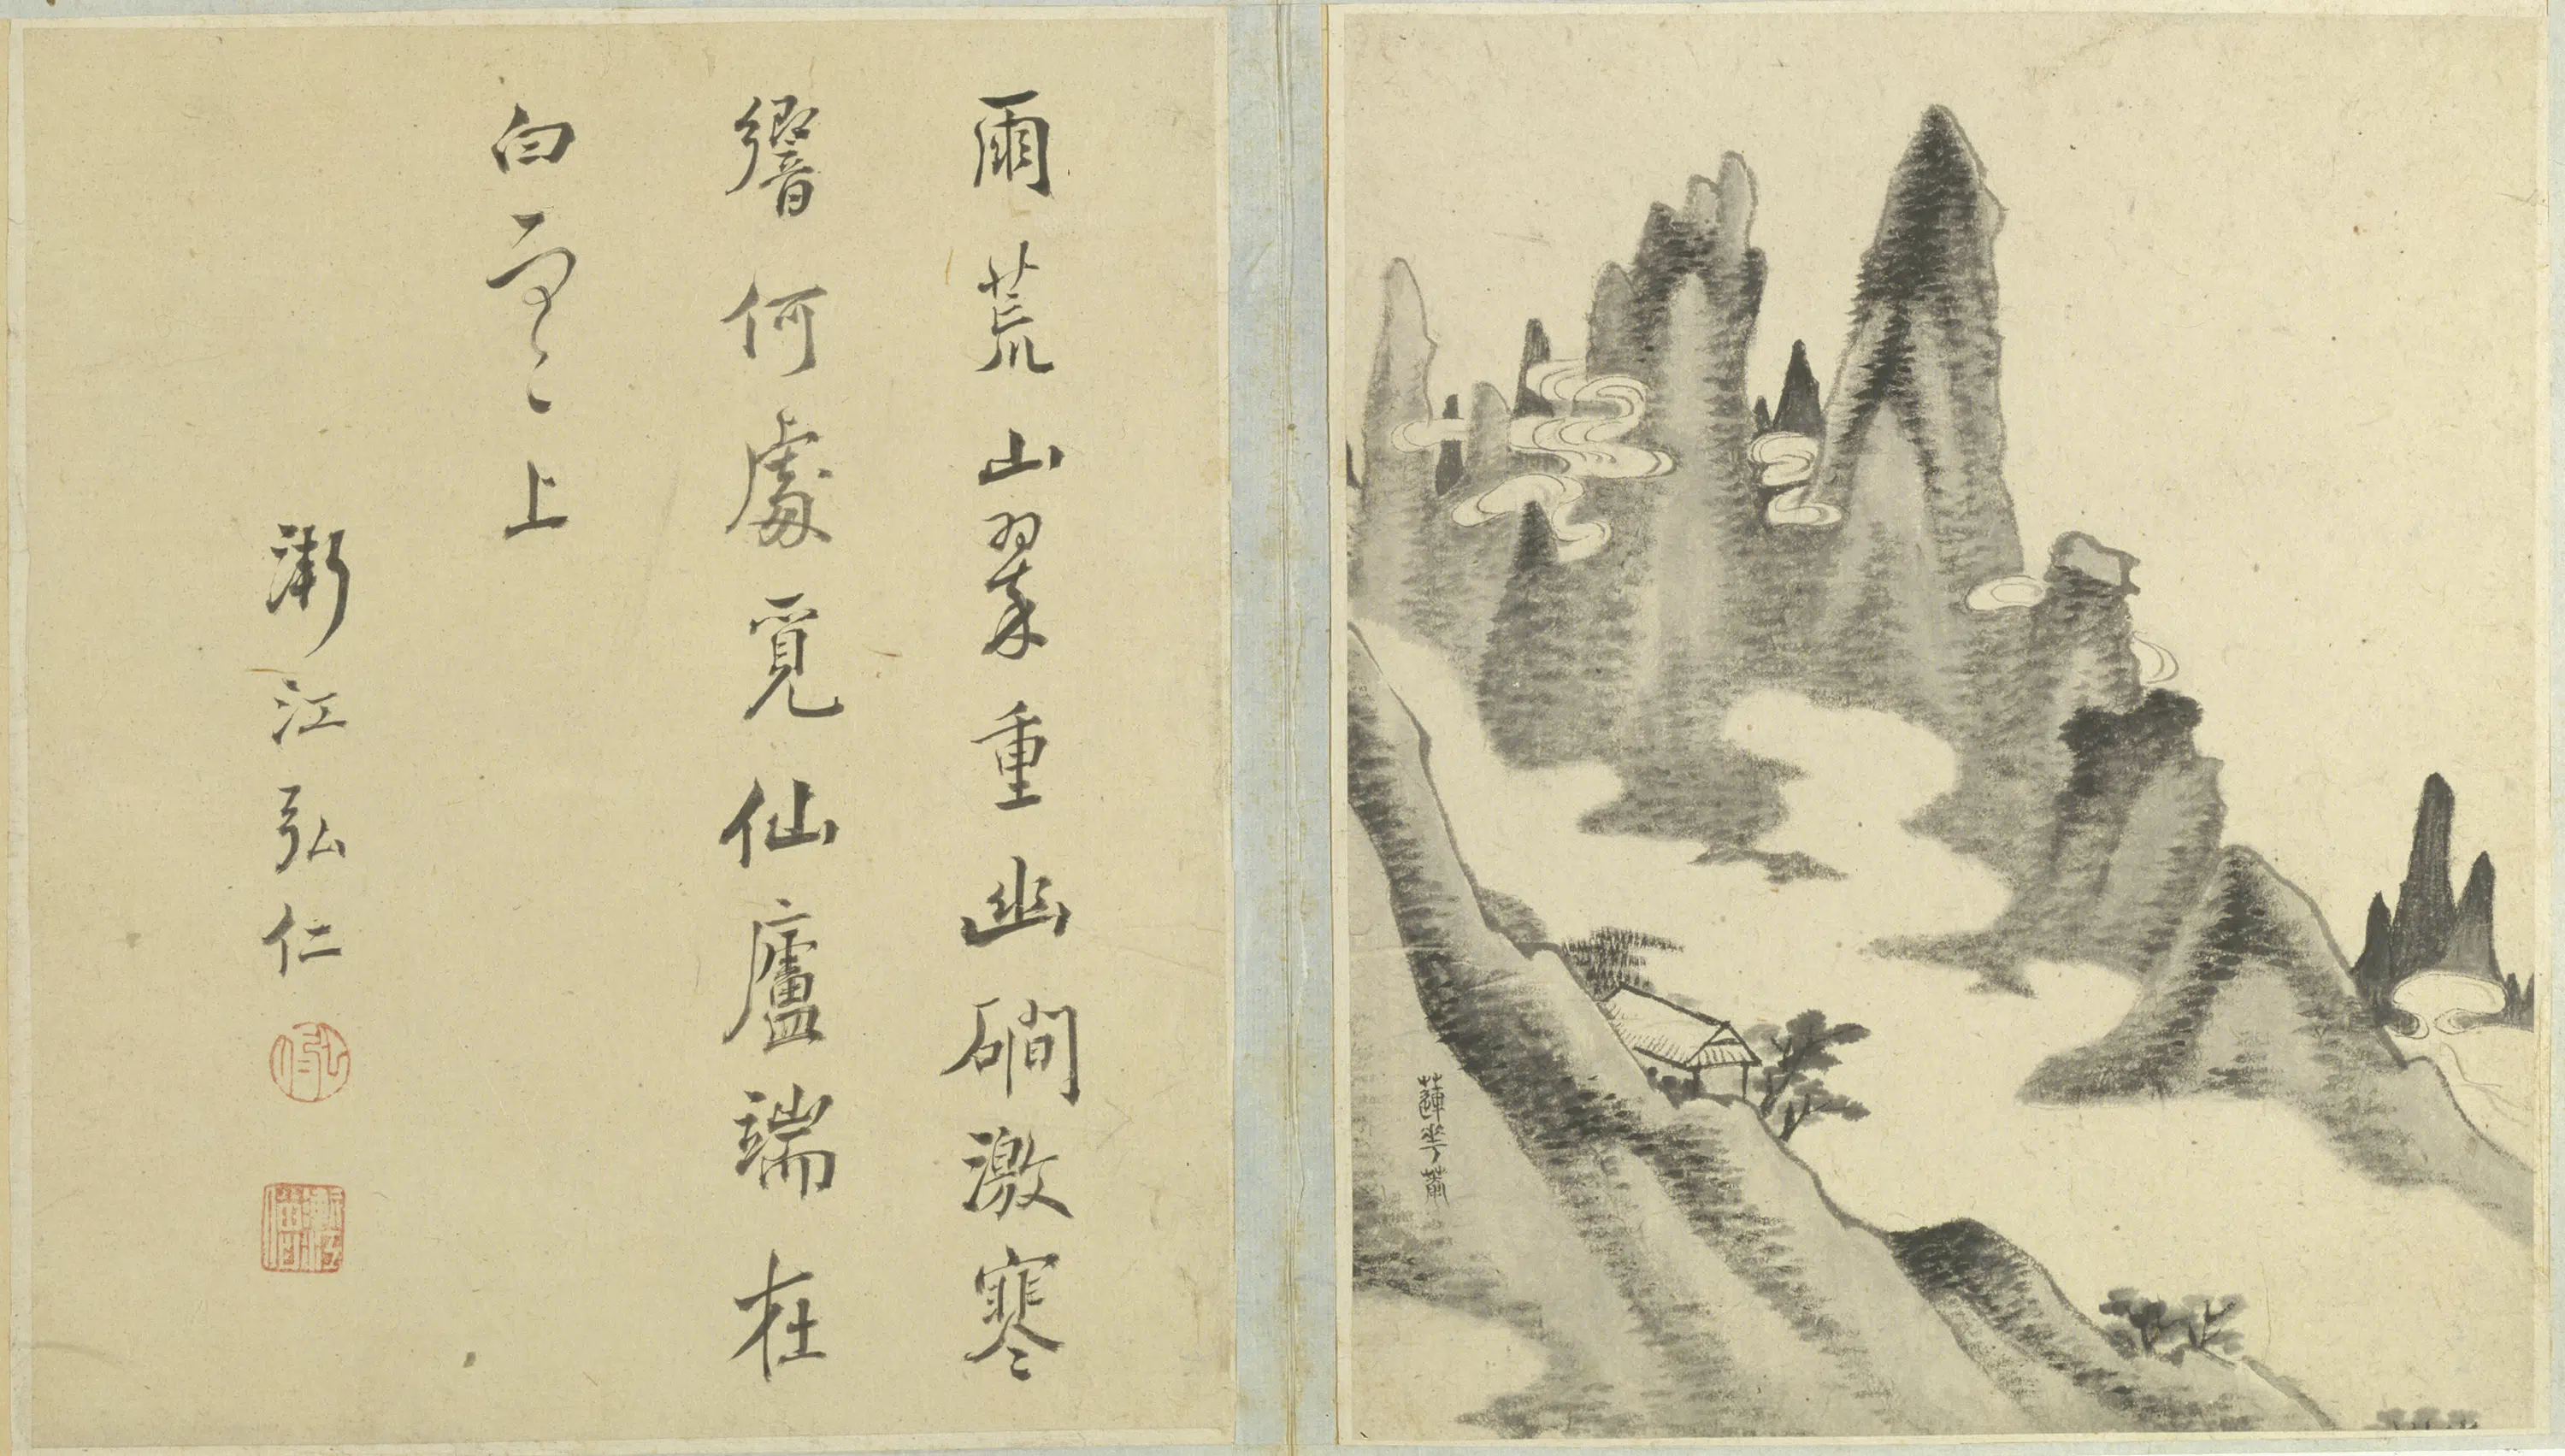 蓮華
雨荒山翠重幽磵激寒
響何處覓仙廬端在
白雲上
漸江弘仁
弘仁
漸江僧